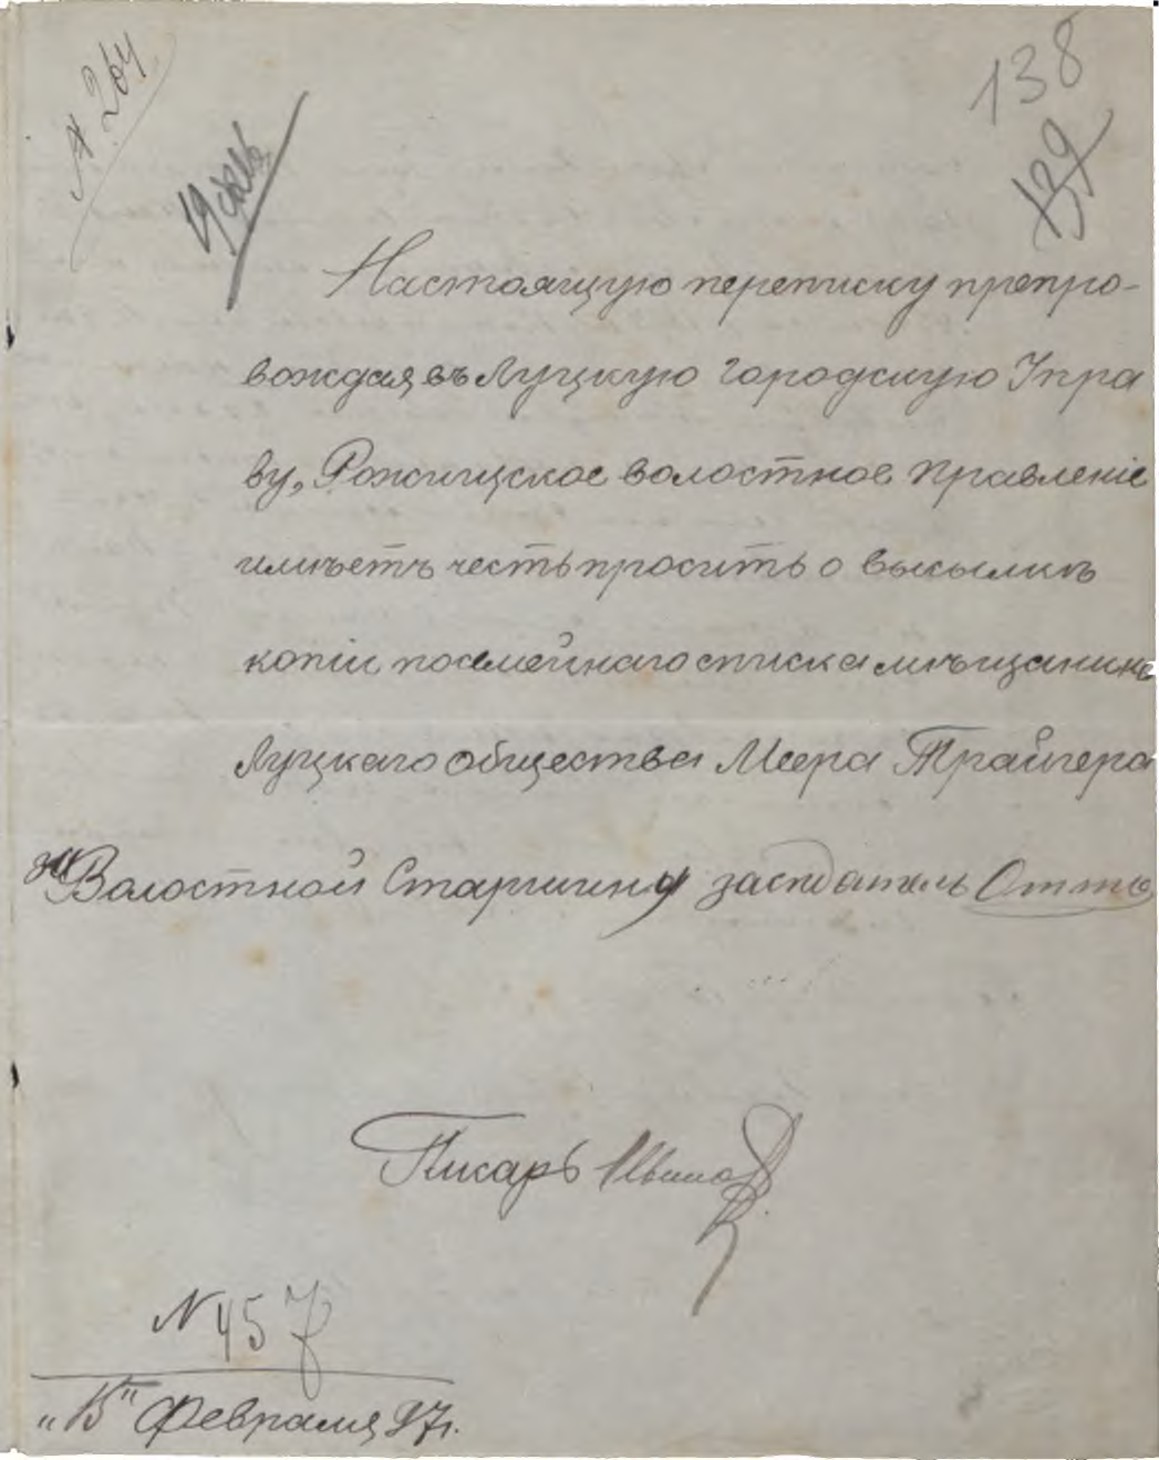 № 264
138
139
Настоящую переписку препро-
вождая въ Луцкую Городскую Упра
ву, Рожищское волостное Правленіе
имѣетъ честь просить о высылкѣ
копіи посемейнаго списка мѣщанина
Луцкаго общества Меера Трайгера
за Волостной Старшину засѣдатель Отто
Писарь
№ 457
"15" Февраля 97г.